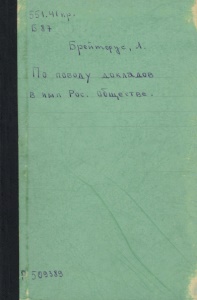 551.41
Б87
Брейтфус, Л.
По поводу докладов
в имп Рос. обществе.
509389